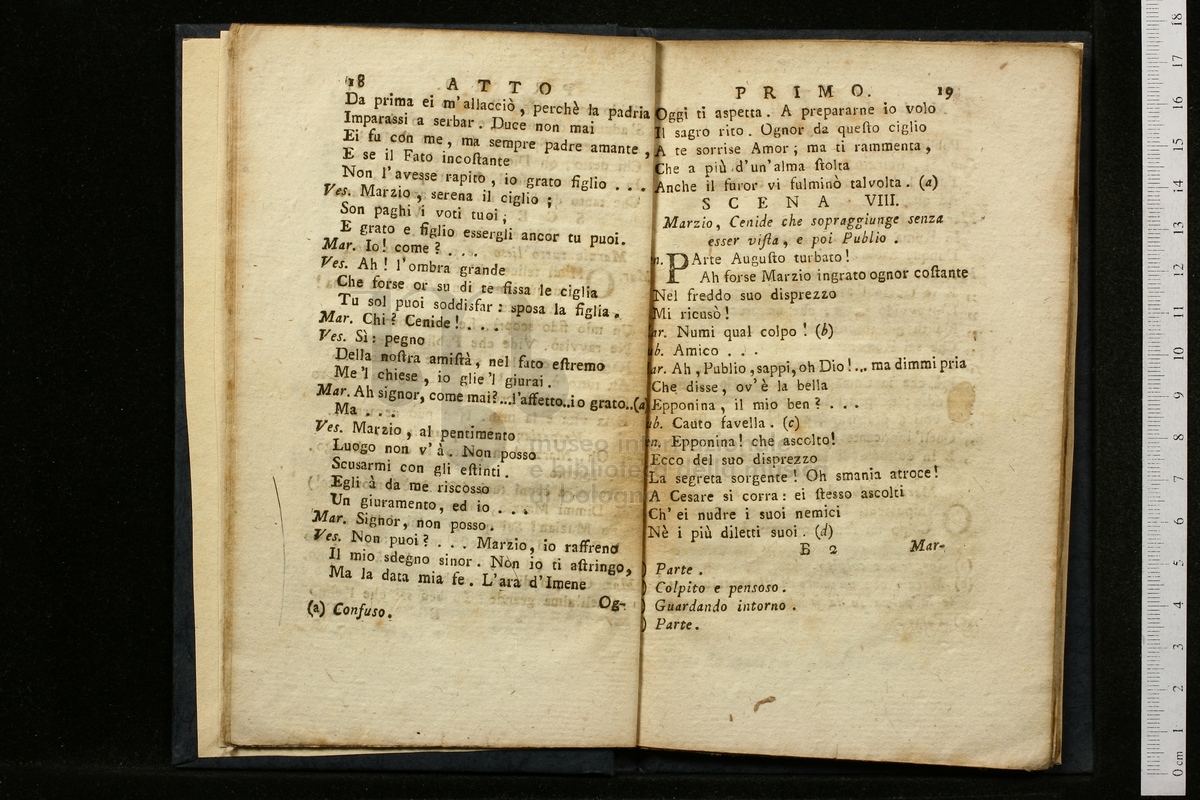 18 ATTO
Da prima ei m'allacciò, perchè la padria
Imparassi a serbar. Duce non mai
Ei fu con me, ma sempre padre amante,
E se il Fato incoſtante
Non l'avesse rapito, io grato figlio . . .
Ves. Marzio, serena il ciglio;
Son paghi i voti tuoi,
E grato e figlio essergli ancor tu puoi.
Mar. Io! come? . . .
Ves. Ah! l'ombra grande
Che forse or su di te fissa le ciglia
Tu sol puoi soddisfar: sposa la figlia.
Mar. Chi? Cenide! . . .
Ves. Sì: pegno
Della noſtra amiſtà, nel fato eſtremo
Me'l chiese, io glie'l giurai.
Mar. Ah signor, come mai?...l'affetto..io grato..(a)
Ma . . .
Ves. Marzio, al pentimento
Luogo non v'à. Non posso
Scusarmi con gli eſtinti.
Egli à da me riscosso
Un giuramento, ed io . . .
Mar. Signor, non posso.
Ves. Non puoi? . . . Marzio, io raffreno
Il mio sdegno sinor. Nòn io ti aſtringo,
Ma la data mia fe. L'ara d'Imene
Og-
(a) Confuso.
PRIMO. 19
Oggi ti aspetta. A prepararne io volo
Il sagro rito. Ognor da queſto ciglio
A te sorrise Amor; ma ti rammenta,
Che a più d'un'alma ſtolta
Anche il furor vi fulminò talvolta. (a)
SCENA VIII.
Marzio, Cenide che sopraggiunge senza
esser viſta, e poi Publio.
n. PArte Auguſto turbato!
Ah forse Marzio ingrato ognor coſtante
Nel freddo suo disprezzo
Mi ricusò!
ar. Numi qual colpo! (b)
ub. Amico . . .
ar. Ah, Publio, sappi, oh Dio!... ma dimmi pria
Che disse, ov'è la bella
Epponina, il mio ben? . . .
ub. Cauto favella. (c)
n. Epponina! che ascolto!
Ecco del suo disprezzo
La segreta sorgente! Oh smania atroce!
A Cesare si corra: ei ſtesso ascolti
Ch'ei nudre i suoi nemici
Nè i più diletti suoi. (d)
B 2 Mar-
) Parte.
) Colpito e pensoso.
) Guardando intorno.
) Parte.